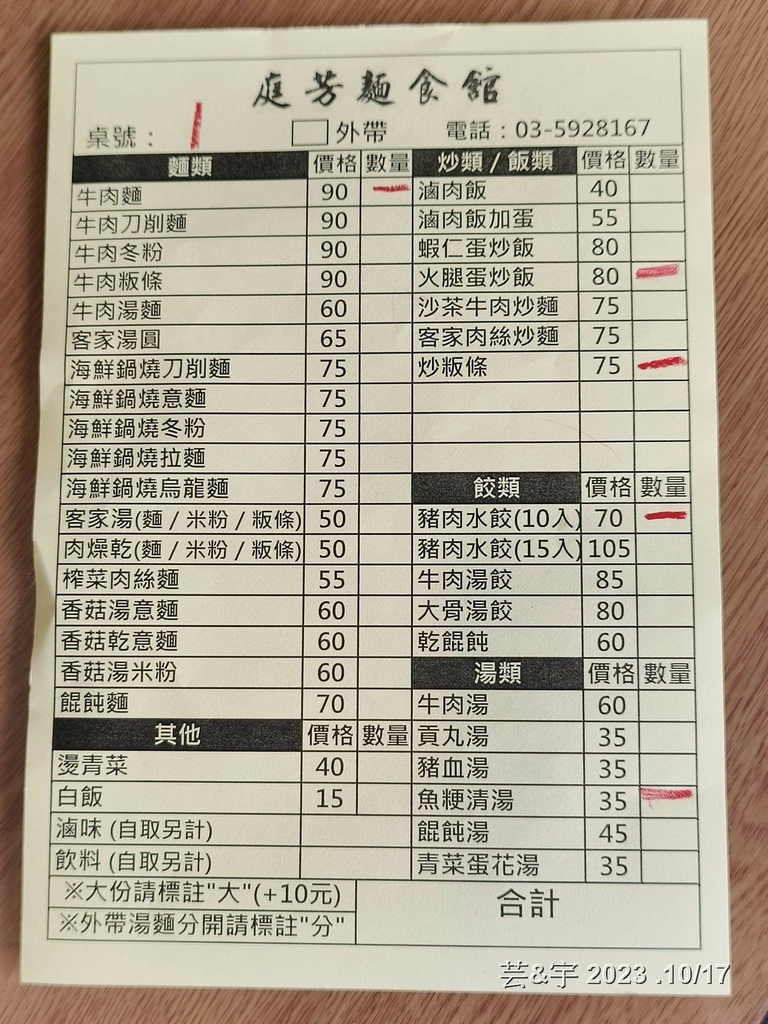 庭芳麵食館
桌號： 1 外帶 電話：03-5928167
麵類 價格 數量 炒類/飯類 價格 數量
牛肉麵 90 一 滷肉飯 40
牛肉刀削麵 90 滷肉飯加蛋 55
牛肉冬粉 90 蝦仁蛋炒飯 80
牛肉粄條 90 火腿蛋炒飯 80 一
牛肉湯麵 60 沙茶牛肉炒麵 75
客家湯圓 65 客家肉絲炒麵 75
海鮮鍋燒刀削麵 75 炒粄條 75 一
海鮮鍋燒意麵 75
海鮮鍋燒冬粉 75
海鮮鍋燒拉麵 75
海鮮鍋燒烏龍麵 75 餃類 價格 數量
客家湯(麵/米粉/粄條) 50 豬肉水餃(10入) 70 一
肉燥乾(麵/米粉/粄條) 50 豬肉水餃(15入) 105
榨菜肉絲麵 55 牛肉湯餃 85
香菇湯意麵 60 大骨湯餃 80
香菇乾意麵 60 乾餛飩 60
香菇湯米粉 60 湯類 價格 數量
餛飩麵 70 牛肉湯 60
其他 價格 數量 貢丸湯 35
燙青菜 40 豬血湯 35
白飯 15 魚粳清湯 35 一
滷味 (自取另計) 餛飩湯 45
飲料 (自取另計) 青菜蛋花湯 35
※大份請標註"大"(+10元) 合計
※外帶湯麵分開請標註"分"
芸&宇 2023 .10/17